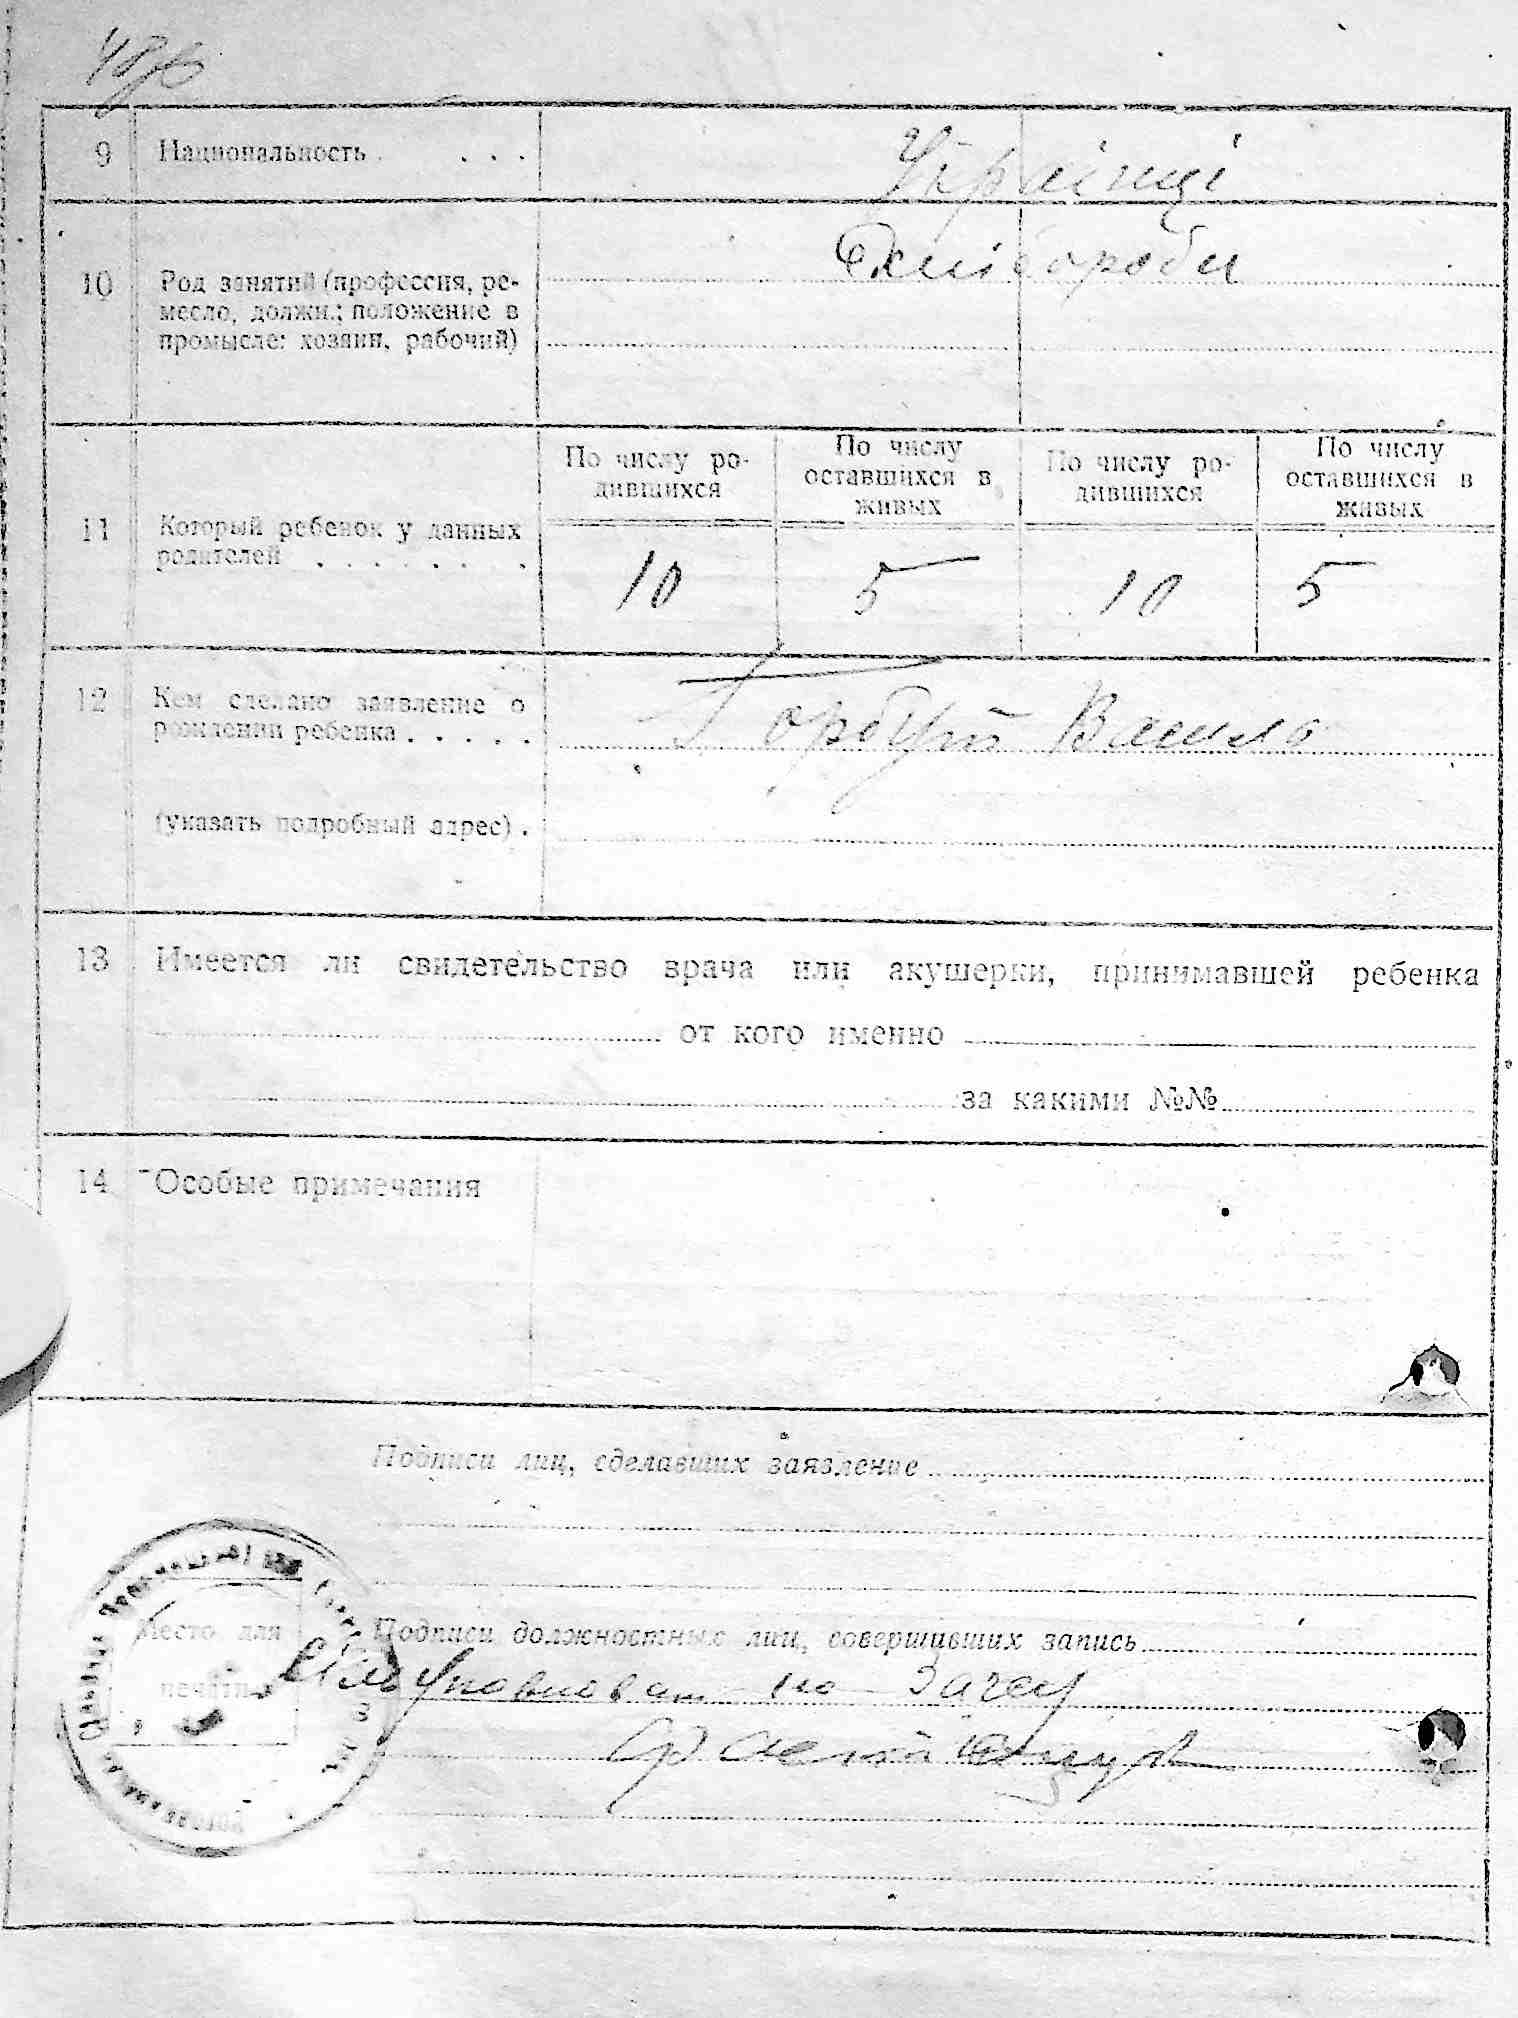 9 Национальность . . . .
Українці
10 Род занятий (профессия, ре-
месло, должн.; положение в
промысле: хозяин, рабочий)
Хлібороби
11 Который ребенок у данных
родителей . . . . . . .
По числу ро-
дившихся
По числу
оставшихся в
живых
По числу ро-
дившихся
По числу
оставшихся в
живых
10 5 10 5
12 Кем сделано заявление о
рождении ребенка . . . . .
Горбуй Василь
(указать подробный адрес) .
13 Имеется ли свидетельство врача или акушерки, принимавшей ребенка
от кого именно
за какими №№
14 Особые примечания
Подписи лиц, сделавших заявление
Место для
печати
Подписи должностных лиц, совершивших запись
Уповноваж по Загсу